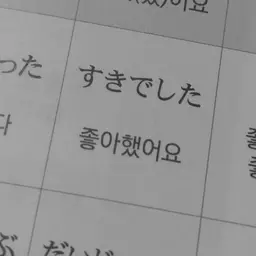 어요
った
すきでした
다
좋아했어요
ぶ
だいじ